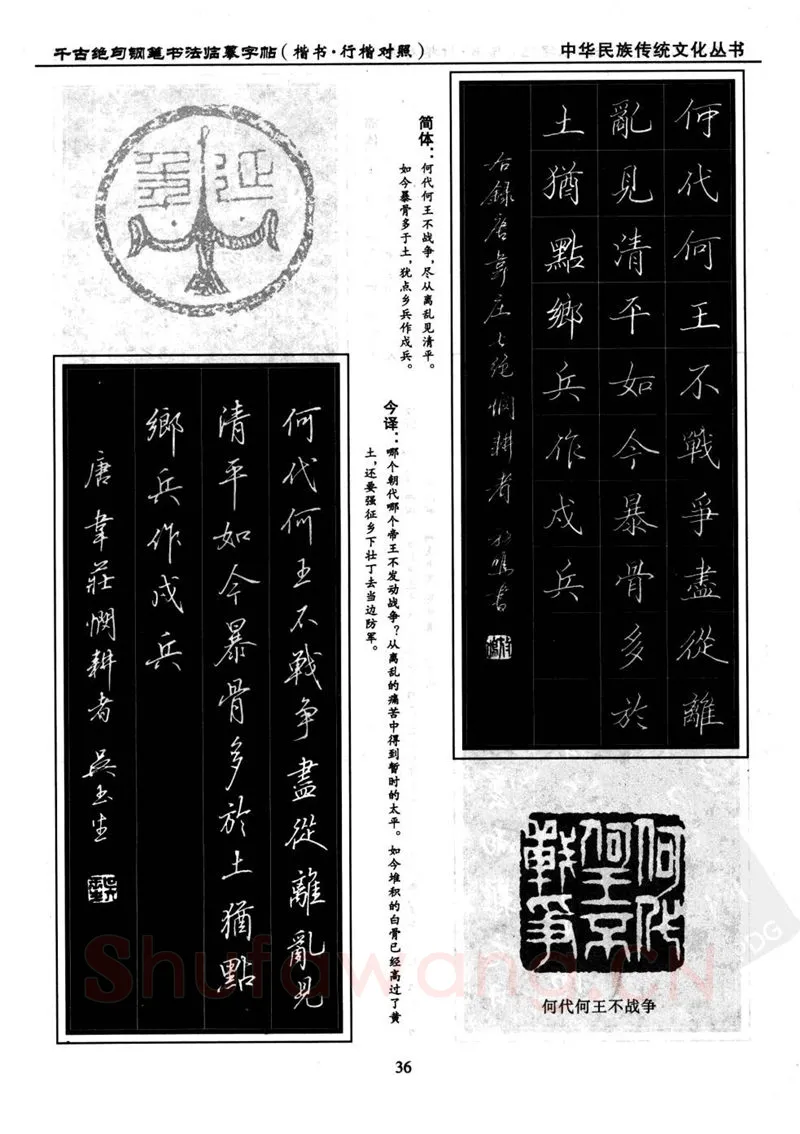 千古绝句钢笔书法临摹字帖(楷书·行楷对照)
中华民族传统文化丛书
何代何王不戰爭盡從離
亂見清平如今暴骨多於
土猶點鄉兵作戍兵
右錄唐韋庄七绝憫耕者
简体：何代何王不战争，尽从离乱见清平。
如今暴骨多于土，犹点乡兵作戍兵。
今译：哪个朝代哪个帝王不发动战争？从离乱的痛苦中得到暂时的太平。如今堆积的白骨已经高过了黄
土，还要强征乡下壮丁去当边防军。
何代何王不戰争盡從離亂見
清平如今暴骨多於土猶點
鄉兵作戍兵
唐韋莊憫耕者 吴玉生
何代
何王不
戰爭
何代何王不战争
36
Shufawang.CN